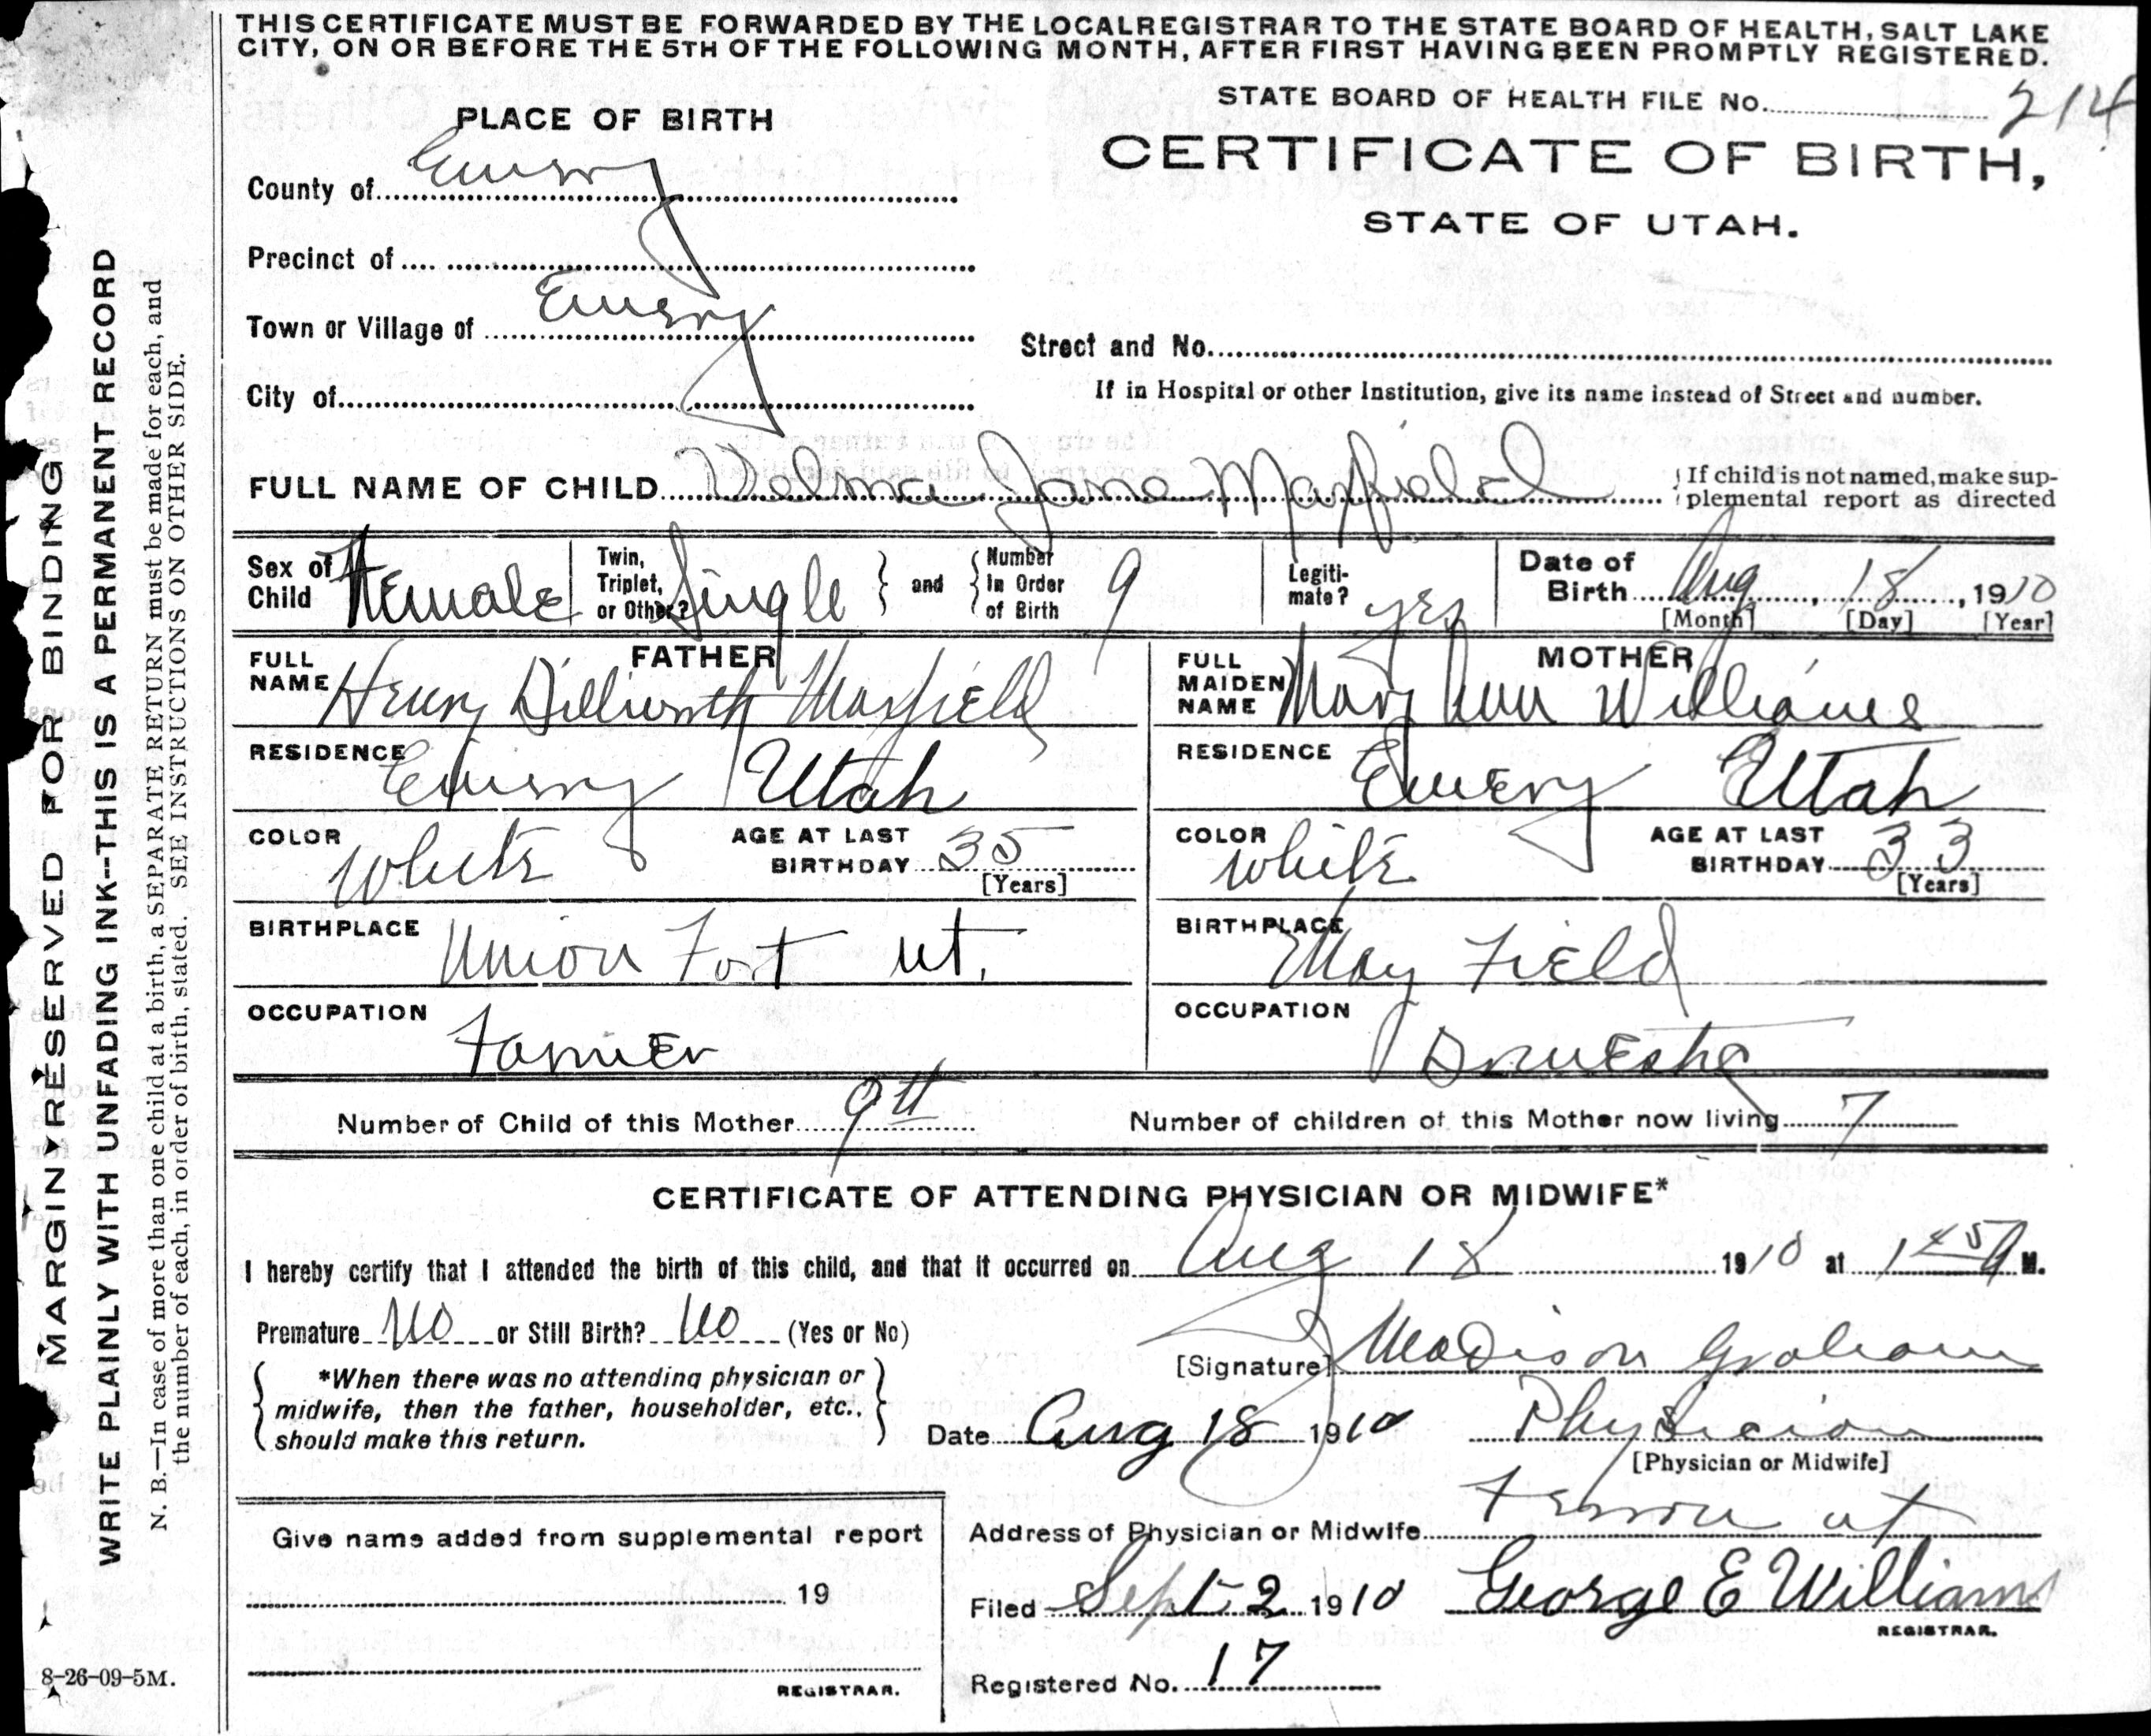 THIS CERTIFICATE MUST BE FORWARDED BY THE LOCAL REGISTRAR TO THE STATE BOARD OF HEALTH, SALT LAKE
CITY, ON OR BEFORE THE 5TH OF THE FOLLOWING MONTH, AFTER FIRST HAVING BEEN PROMPTLY REGISTERED.
STATE BOARD OF HEALTH FILE No. 214
PLACE OF BIRTH
CERTIFICATE OF BIRTH,
STATE OF UTAH.
County of Emery
Precinct of
Town or Village of Emery
Street and No.
City of
If in Hospital or other Institution, give its name instead of Street and number.
FULL NAME OF CHILD Velma Jane Maxfield
If child is not named, make sup-
plemental report as directed
Sex of Child Female
Twin, Triplet, or Other? Single and Number In Order of Birth 9
Legiti-mate? yes
Date of Birth Aug, 18, 1910
[Month] [Day] [Year]
FATHER
FULL NAME Henry Dilliworth Maxfield
RESIDENCE Emery Utah
COLOR White
AGE AT LAST BIRTHDAY 35
[Years]
BIRTHPLACE Union Fort ut.
OCCUPATION Farmer
MOTHER
FULL MAIDEN NAME Mary Ann Williams
RESIDENCE Emery Utah
COLOR White
AGE AT LAST BIRTHDAY 33
[Years]
BIRTHPLACE May Field
OCCUPATION
Number of Child of this Mother 9th
Number of children of this Mother now living 7
CERTIFICATE OF ATTENDING PHYSICIAN OR MIDWIFE*
I hereby certify that I attended the birth of this child, and that it occurred on Aug 18 1910 at 1 45 A M.
Premature No or Still Birth? No (Yes or No)
[Signature] Madison Graham
*When there was no attending physician or
midwife, then the father, householder, etc.,
should make this return.
Date Aug 18 1910 Physician
[Physician or Midwife]
Address of Physician or Midwife Ferron ut
Give name added from supplemental report
19
REGISTRAR.
Filed Sept 2 1910 George E Williams
REGISTRAR.
Registered No. 17
MARGIN RESERVED FOR BINDING
WRITE PLAINLY WITH UNFADING INK--THIS IS A PERMANENT RECORD
N. B.—In case of more than one child at a birth, a SEPARATE RETURN must be made for each, and
the number of each, in order of birth, stated. SEE INSTRUCTIONS ON OTHER SIDE.
8-26-09-5M.